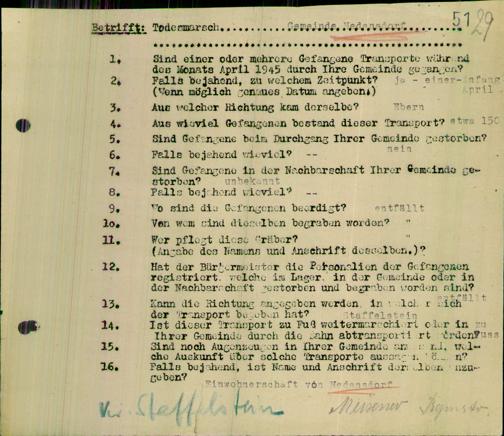 5129
Betrifft: Todesmarsch. Gemeinde Nedensdorf
1. Sind einer oder mehrere Gefangene Transporte während
des Monats April 1945 durch Ihre Gemeinde gegangen?
2. Falls bejahend, zu welchem Zeitpunkt? ja - einer-Anfang
(Wenn möglich genaues Datum angeben.) April
3. Aus welcher Richtung kam derselbe? Ebern
4. Aus wieviel Gefangenen bestand dieser Transport? etwa 150
5. Sind Gefangene beim Durchgang Ihrer Gemeinde gestorben?
nein
6. Falls bejahend wieviel? --
7. Sind Gefangene in der Nachbarschaft Ihrer Gemeinde ge-
storben? unbekannt
8. Falls bejahend wieviel? --
9. Wo sind die Gefangenen beerdigt? entfällt
10. Von wem sind dieselben begraben worden? "
11. Wer pflegt diese Gräber? "
(Angabe des Namens und Anschrift desselben.)?
12. Hat der Bürgermeister die Personalien der Gefangenen
registriert, welche im Lager, in der Gemeinde oder in
der Nachbarschaft gestorben und begraben worden sind?
entfällt
13. Kann die Richtung angegeben werden, in welcher sich
der Transport begeben hat? Staffelstein
14. Ist dieser Transport zu Fuß weitermarschiert oder in zu
Ihrer Gemeinde durch die Bahn abtransportiert worden? Fuss
15. Sind noch Augenzeugen in Ihrer Gemeinde, wel-
che Auskunft über solche Transporte aussagen können?
16. Falls bejahend, ist Name und Anschrift derselben anzu-
geben?
Einwohnerschaft von Nedensdorf
Kr. Staffelstein Meissner